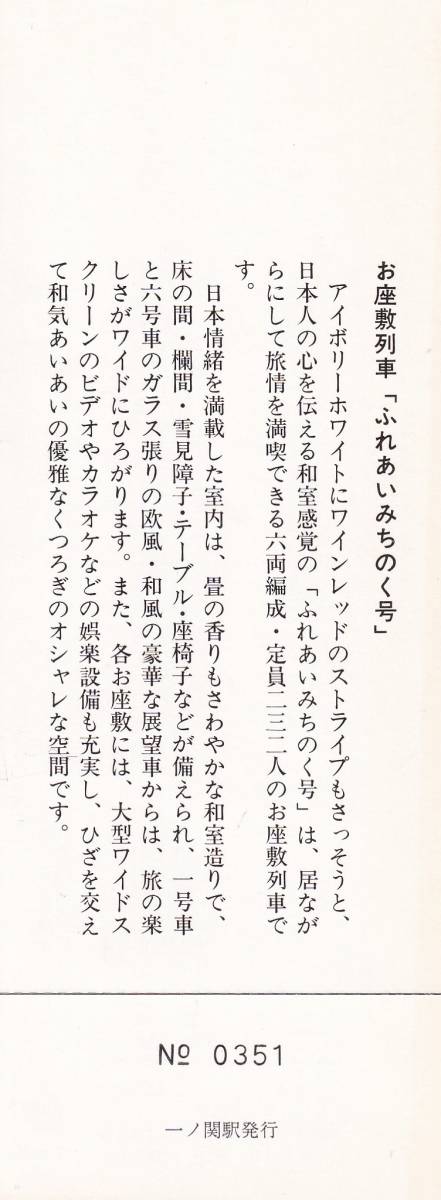 お座敷列車「ふれあいみちのく号」
アイボリーホワイトにワインレッドのストライプもさっそうと、
日本人の心を伝える和室感覚の「ふれあいみちのく号」は、居なが
らにして旅情を満喫できる六両編成・定員二三二人のお座敷列車で
す。
日本情緒を満載した室内は、畳の香りもさわやかな和室造りで、
床の間・欄間・雪見障子・テーブル・座椅子などが備えられ、一号車
と六号車のガラス張りの欧風・和風の豪華な展望車からは、旅の楽
しさがワイドにひろがります。また、各お座敷には、大型ワイドス
クリーンのビデオやカラオケなどの娯楽設備も充実し、ひざを交え
て和気あいあいの優雅なくつろぎのオシャレな空間です。
№ 0351
一ノ関駅発行